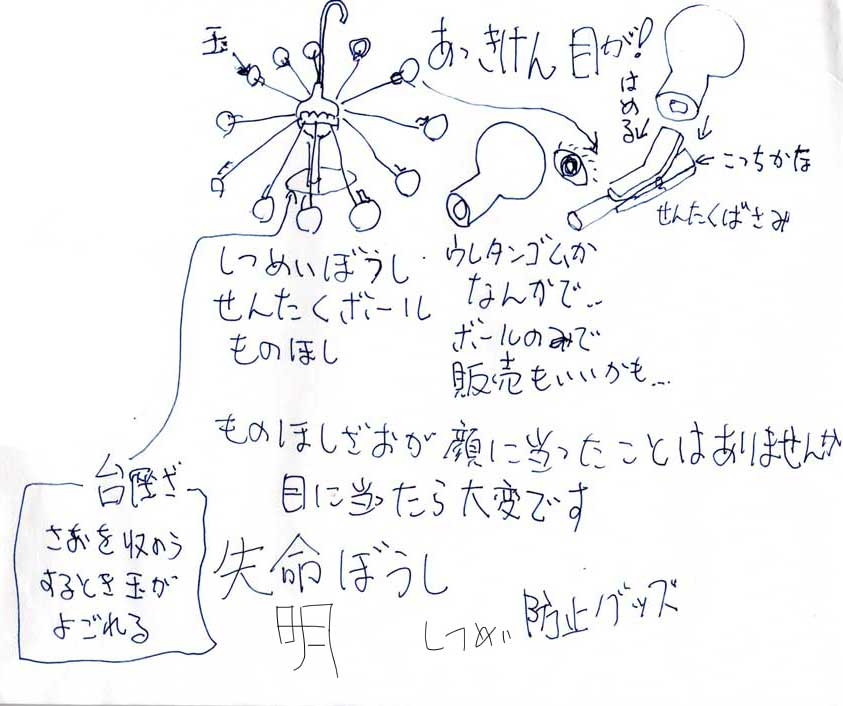 玉
あっきけん 目が!
はめる
こっちかな
せんたくばさみ
しつめいぼうし
せんたくボール
ものほし
ウレタンゴムか
なんかで…
ボールのみで
販売もいいかも…
ものほしざおが顔に当ったことはありませんか
目に当ったら大変です
台座ざ
さおを収のう
するとき玉が
よごれる
失命ぼうし
明
しつめい防止グッズ